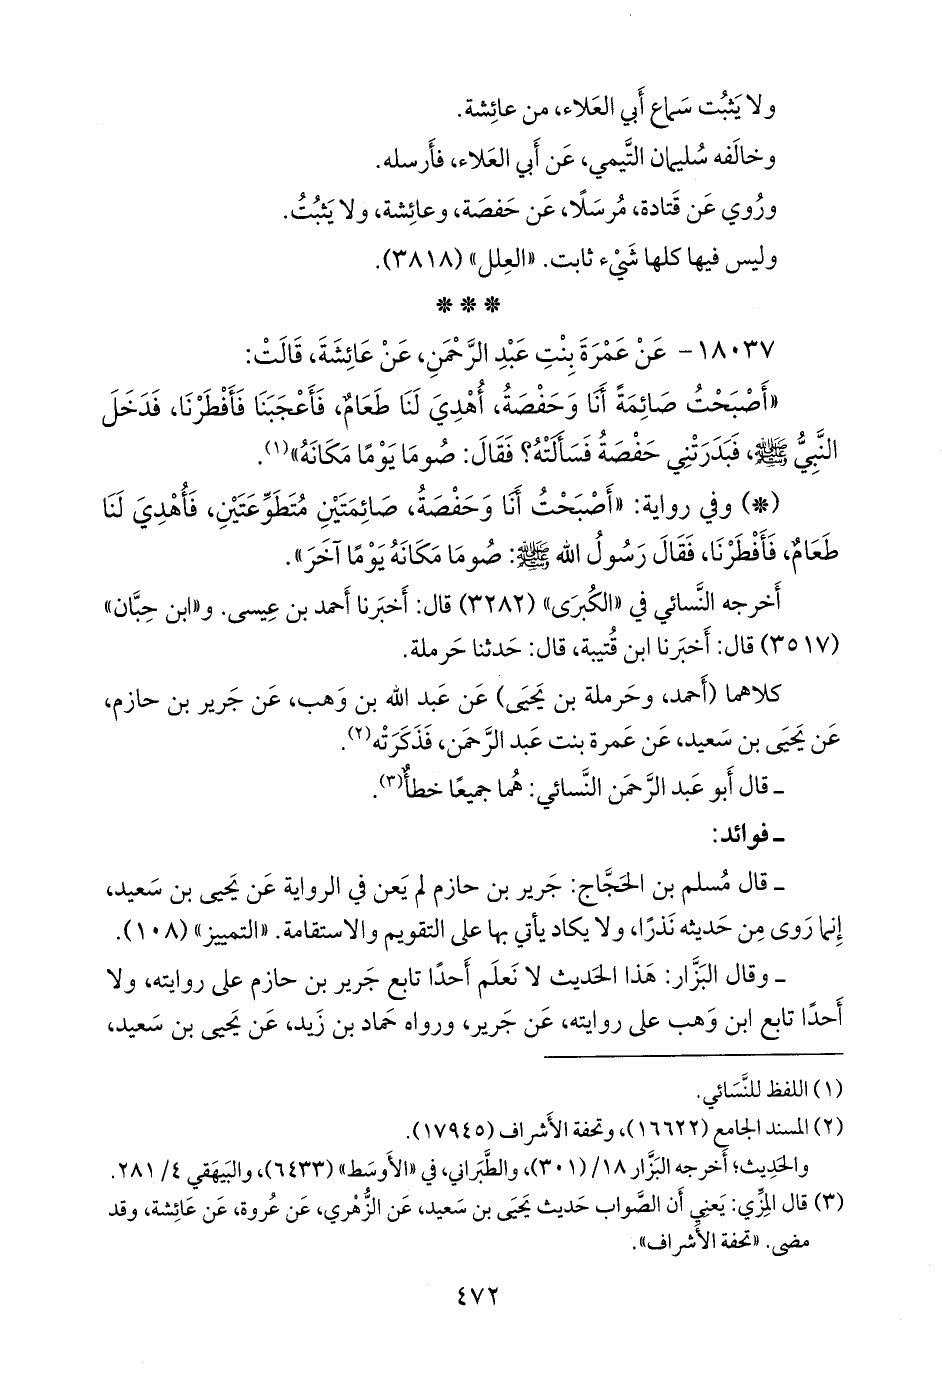 ولا يَثبُت سَماع أَبي العَلاء، من عائِشة.
وخالَفه سُليمان التَّيمي، عَن أَبي العَلاء، فأَرسله.
ورُوي عَن قَتادة، مُرسَلًا، عَن حَفصَة، وعائِشة، ولا يَثبُتُ.
وليس فيها كلها شَيْء ثابت. «العِلل» (٣٨١٨).
* * *
١٨٠٣٧- عَنْ عَمْرَةَ بِنْتِ عَبْدِ الرَّحْمَنِ، عَنْ عَائِشَةَ، قَالَتْ:
«أَصْبَحْتُ صَائِمَةً أَنَا وَحَفْصَةُ، أُهْدِيَ لَنَا طَعَامٌ، فَأَعْجَبَنَا فَأَفْطَرْنَا، فَدَخَلَ
النَّبِيُّ ﷺ، فَبَدَرَتْنِي حَفْصَةُ فَسَأَلَتْهُ؟ فَقَالَ: صُومَا يَوْمًا مَكَانَهُ»(١).
(*) وفي رواية: «أَصْبَحْتُ أَنَا وَحَفْصَةُ، صَائِمَتَيْنِ مُتَطَوِّعَتَيْنِ، فَأُهْدِيَ لَنَا
طَعَامٌ، فَأَفْطَرْنَا، فَقَالَ رَسُولُ الله ﷺ: صُومَا مَكَانَهُ يَوْمًا آخَرَ».
أَخرجه النَّسائي في «الكُبرَى» (٣٢٨٢) قال: أَخبَرنا أَحمد بن عِيسى. و«ابن حِبَّان»
(٣٥١٧) قال: أَخبَرنا ابن قُتيبة، قال: حَدثنا حَرملة.
كلاهما (أَحمد، وحَرملة بن يَحيَى) عَن عَبد الله بن وَهب، عَن جَرير بن حازم،
عَن يَحيَى بن سَعيد، عَن عَمرة بنت عَبد الرَّحمَن، فَذَكَرَتْه(٢).
ـ قال أَبو عَبد الرَّحمَن النَّسائي: هُما جميعًا خطأٌ(٣).
ـ فوائد:
ـ قال مُسلم بن الحَجَّاج: جَرير بن حازم لم يَعن في الرواية عَن يَحيى بن سَعيد،
إِنما رَوى مِن حَديثه نَذرًا، ولا يكاد يأتي بها على التقويم والاستقامة. «التمييز» (١٠٨).
ـ وقال البَزَّار: هَذا الحَديث لا نَعلَم أَحدًا تابع جَرير بن حازم على روايته، ولا
أَحدًا تابع ابن وَهب على روايته، عَن جَرير، ورواه حَماد بن زَيد، عَن يَحيى بن سَعيد،
(١) اللفظ للنَّسَائي.
(٢) المسند الجامع (١٦٦٢٢)، وتحفة الأَشراف (١٧٩٤٥).
والحَدِيث؛ أَخرجه البَزَّار ١٨/ (٣٠١)، والطَّبَراني، في «الأَوسط» (٦٤٣٣)، والبَيهَقي ٤/ ٢٨١.
(٣) قال المِزِّي: يَعني أَن الصَّواب حَديث يَحيَى بن سَعيد، عَن الزُّهْري، عَن عُروة، عَن عَائِشة، وقد
مضى. «تحفة الأَشراف».
٤٧٢